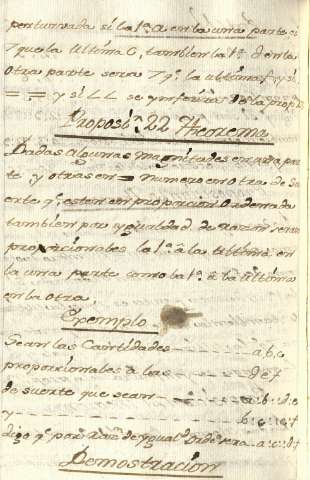 perturvada si la 1ª a en la una parte es
7 que la ultima C, tambien la 1ª d en la
otra parte sera 7 qe la ultima f y si
= = y si L L se ynferira de la prop.
Proposiòn 22 Theorema
Dadas algunas magnitudes en una par
te y otras en = numero en otra de Su
erte qe esten en proporcion Ordenada
tambien por ygualdad de razon seran
proporcionales la 1ª â la ultima en
la una parte como la 1ª â la ultima
en la otra,
Exemplo
Sean las Cantidades - - - - - - a, b, c
proporcionales a las - - - - - - d e f
de suerte que sean - - - - - - a : b :: d : e
y - - - - - - b : c :: e : f
digo qe por razon de ygualdd Orde sera a : c :: d : f
Demostracion